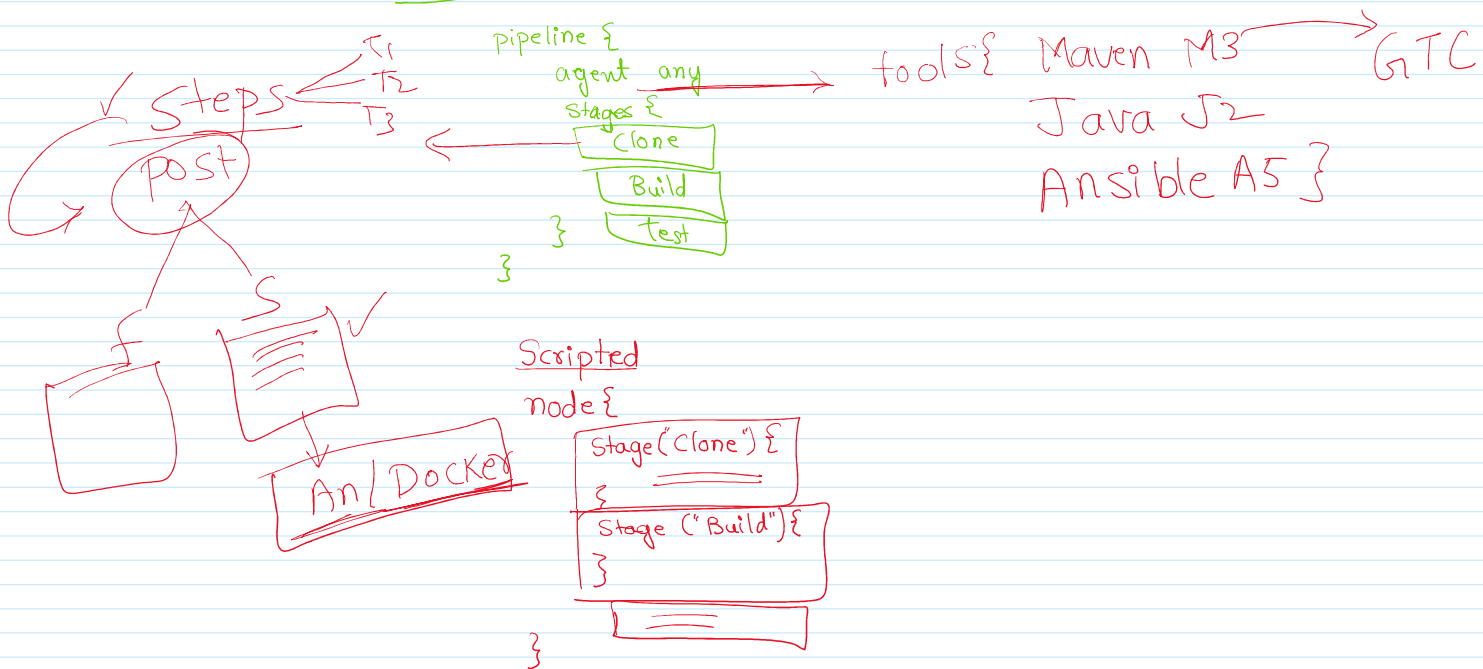 Steps
T1
T2
T3
post
f
S
An/Docker
pipeline {
agent any
Stages {
Clone
Build
Test
}
}
tools{ Maven M3
GTC
Java J2
Ansible A5 }
Scripted
node {
Stage("Clone") {
}
Stage ("Build") {
}
}